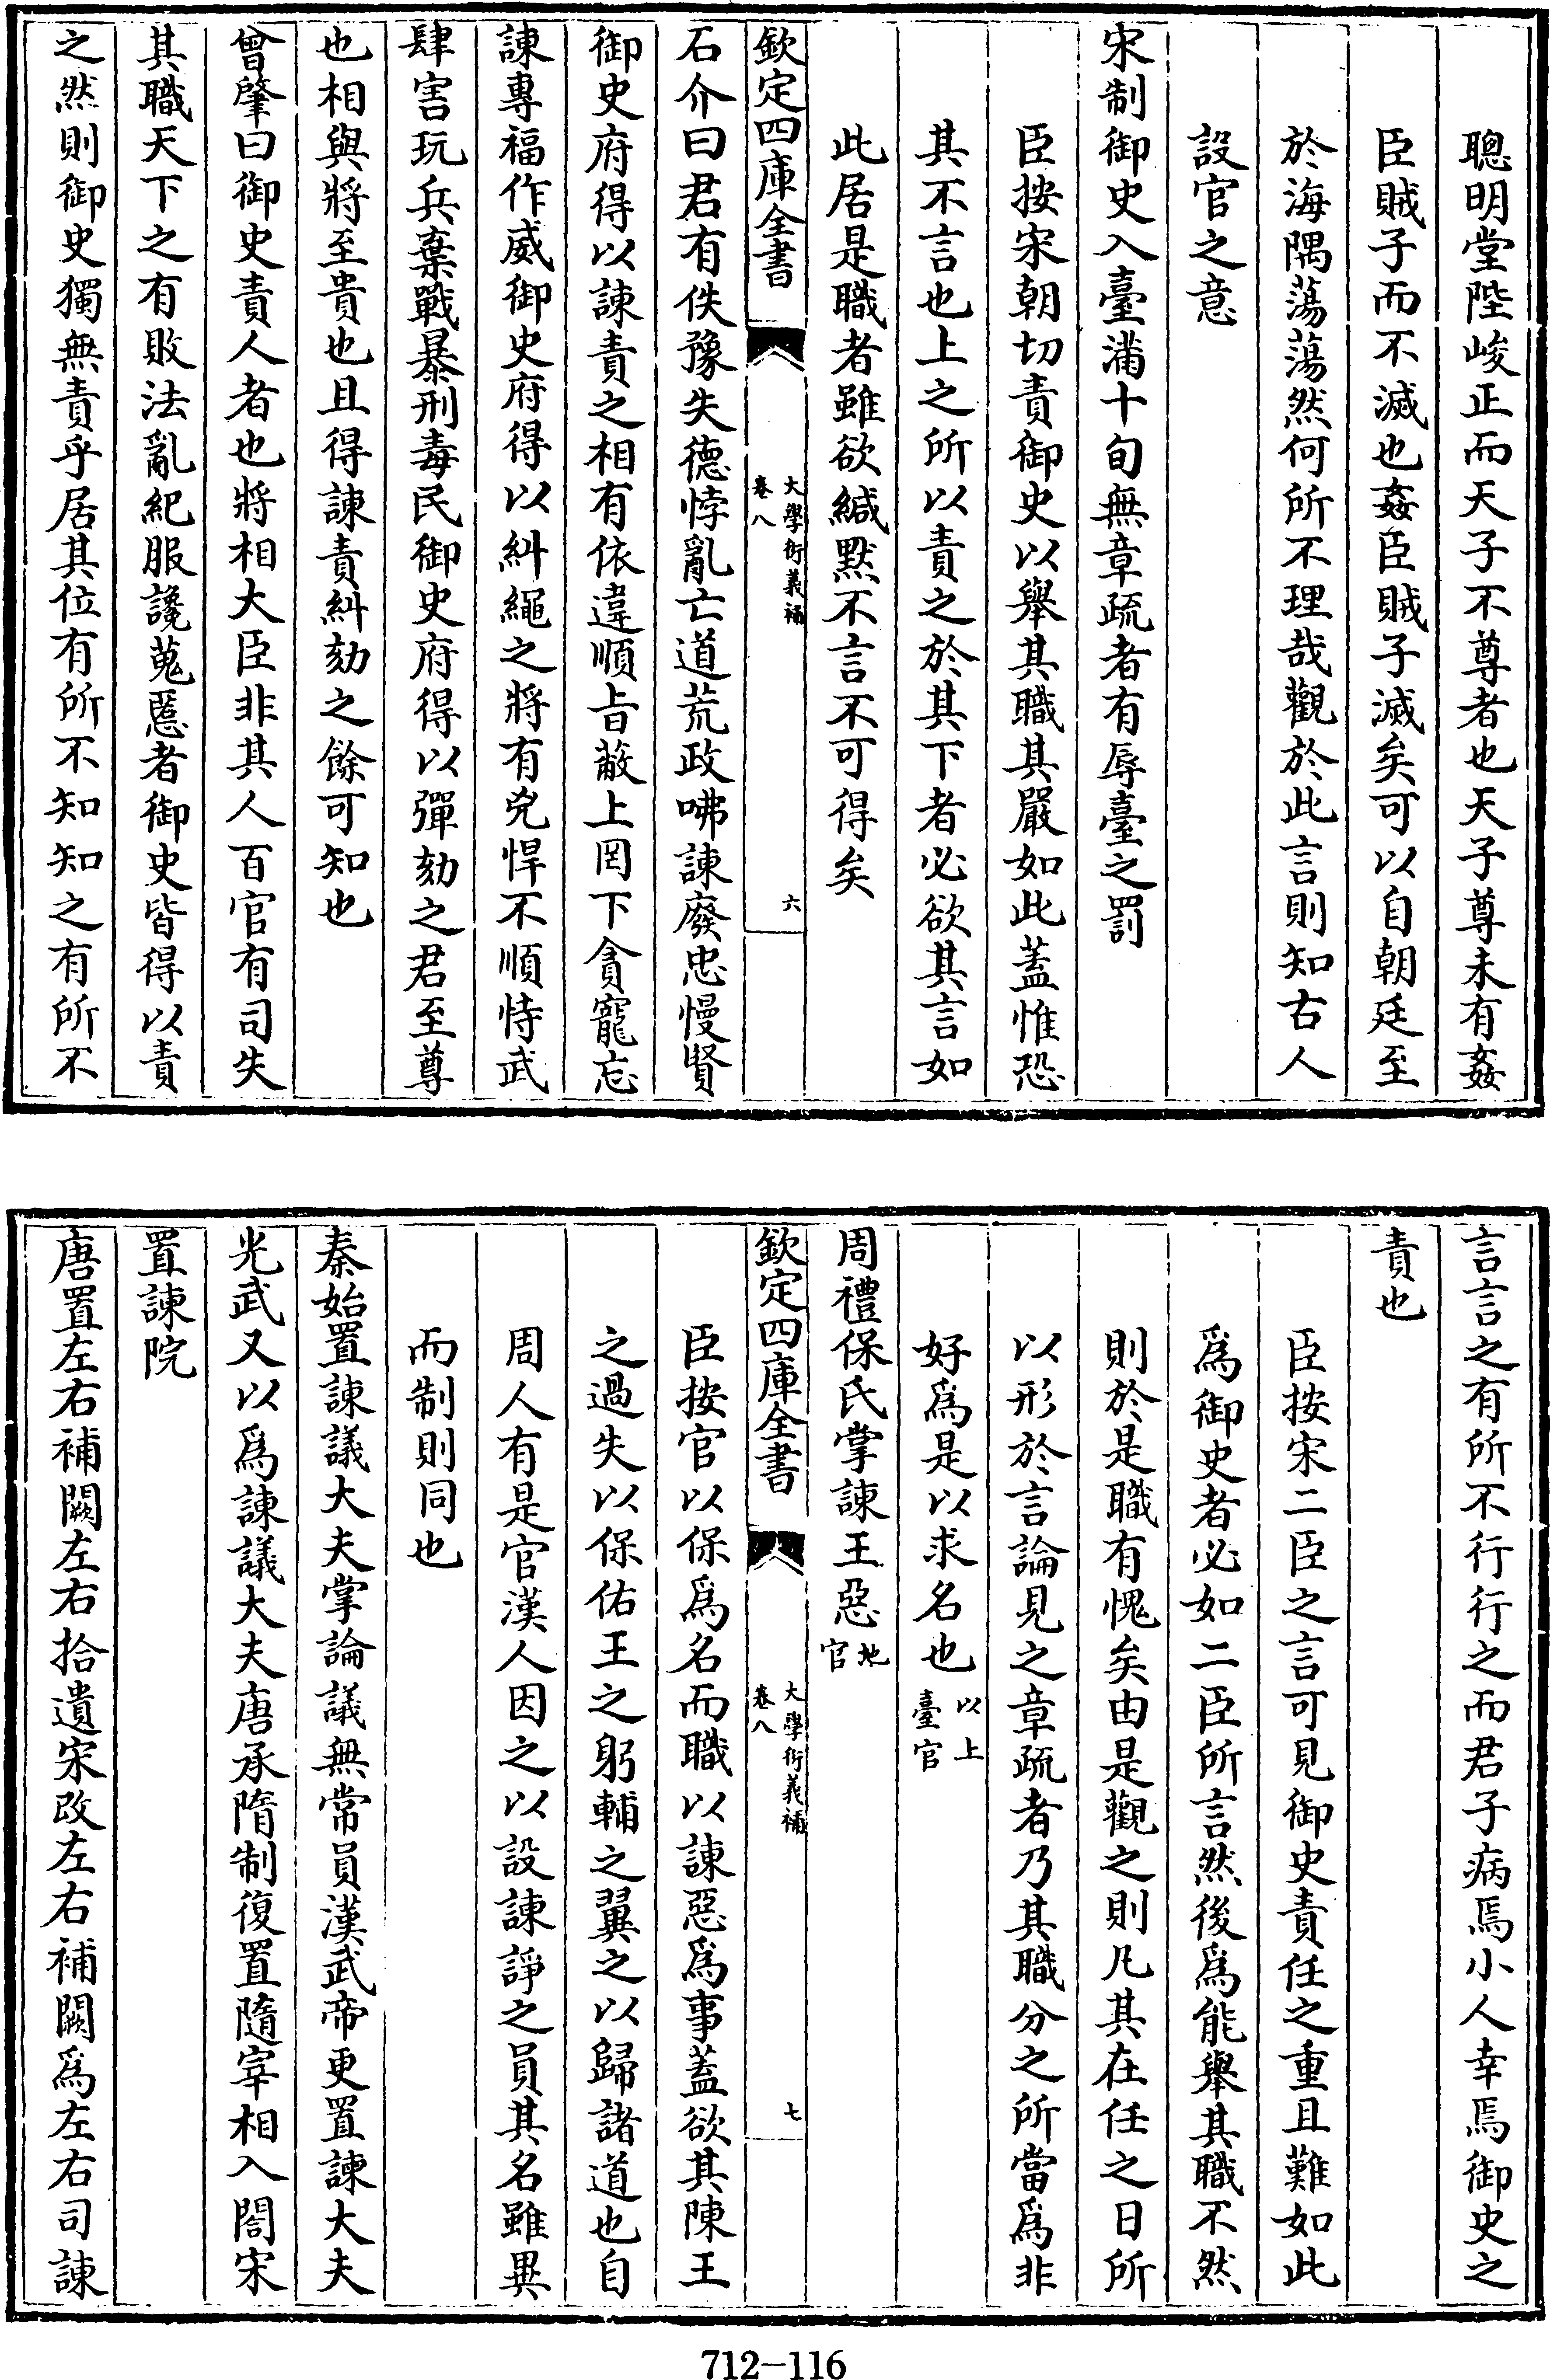 聰明堂陛峻正而天子不尊者也天子尊未有姦
臣賊子而不滅也姦臣賊子滅矣可以自朝廷至
於海隅蕩蕩然何所不理哉觀於此言則知古人
設官之意
宋制御史入臺滿十旬無章疏者有辱臺之罰
臣按宋朝切責御史以舉其職其嚴如此蓋惟恐
其不言也上之所以責之於其下者必欲其言如
此居是職者雖欲緘默不言不可得矣
欽定四庫全書
大學衍義補
卷八
六
石介曰君有佚豫失德悖亂亡道荒政咈諫廢忠慢賢
御史府得以諫責之相有依違順旨蔽上罔下貪寵忘
諫專福作威御史府得以糾繩之將有兇悍不順恃武
肆害玩兵棄戰暴刑毒民御史府得以彈劾之君至尊
也相與將至貴也且得諫責糾劾之餘可知也
曾肇曰御史責人者也將相大臣非其人百官有司失
其職天下之有敗法亂紀服讒蒐慝者御史皆得以責
之然則御史獨無責乎居其位有所不知知之有所不
言言之有所不行行之而君子病焉小人幸焉御史之
責也
臣按宋二臣之言可見御史責任之重且難如此
爲御史者必如二臣所言然後爲能舉其職不然
則於是職有愧矣由是觀之則凡其在任之日所
以形於言論見之章疏者乃其職分之所當爲非
好爲是以求名也以上臺官
周禮保氏掌諫王惡地官
欽定四庫全書
大學衍義補
卷八
七
臣按官以保爲名而職以諫惡爲事蓋欲其陳王
之過失以保佑王之躬輔之翼之以歸諸道也自
周人有是官漢人因之以設諫諍之員其名雖異
而制則同也
秦始置諫議大夫掌論議無常員漢武帝更置諫大夫
光武又以爲諫議大夫唐承隋制復置隨宰相入閤宋
置諫院
唐置左右補闕左右拾遺宋改左右補闕爲左右司諫
712-116